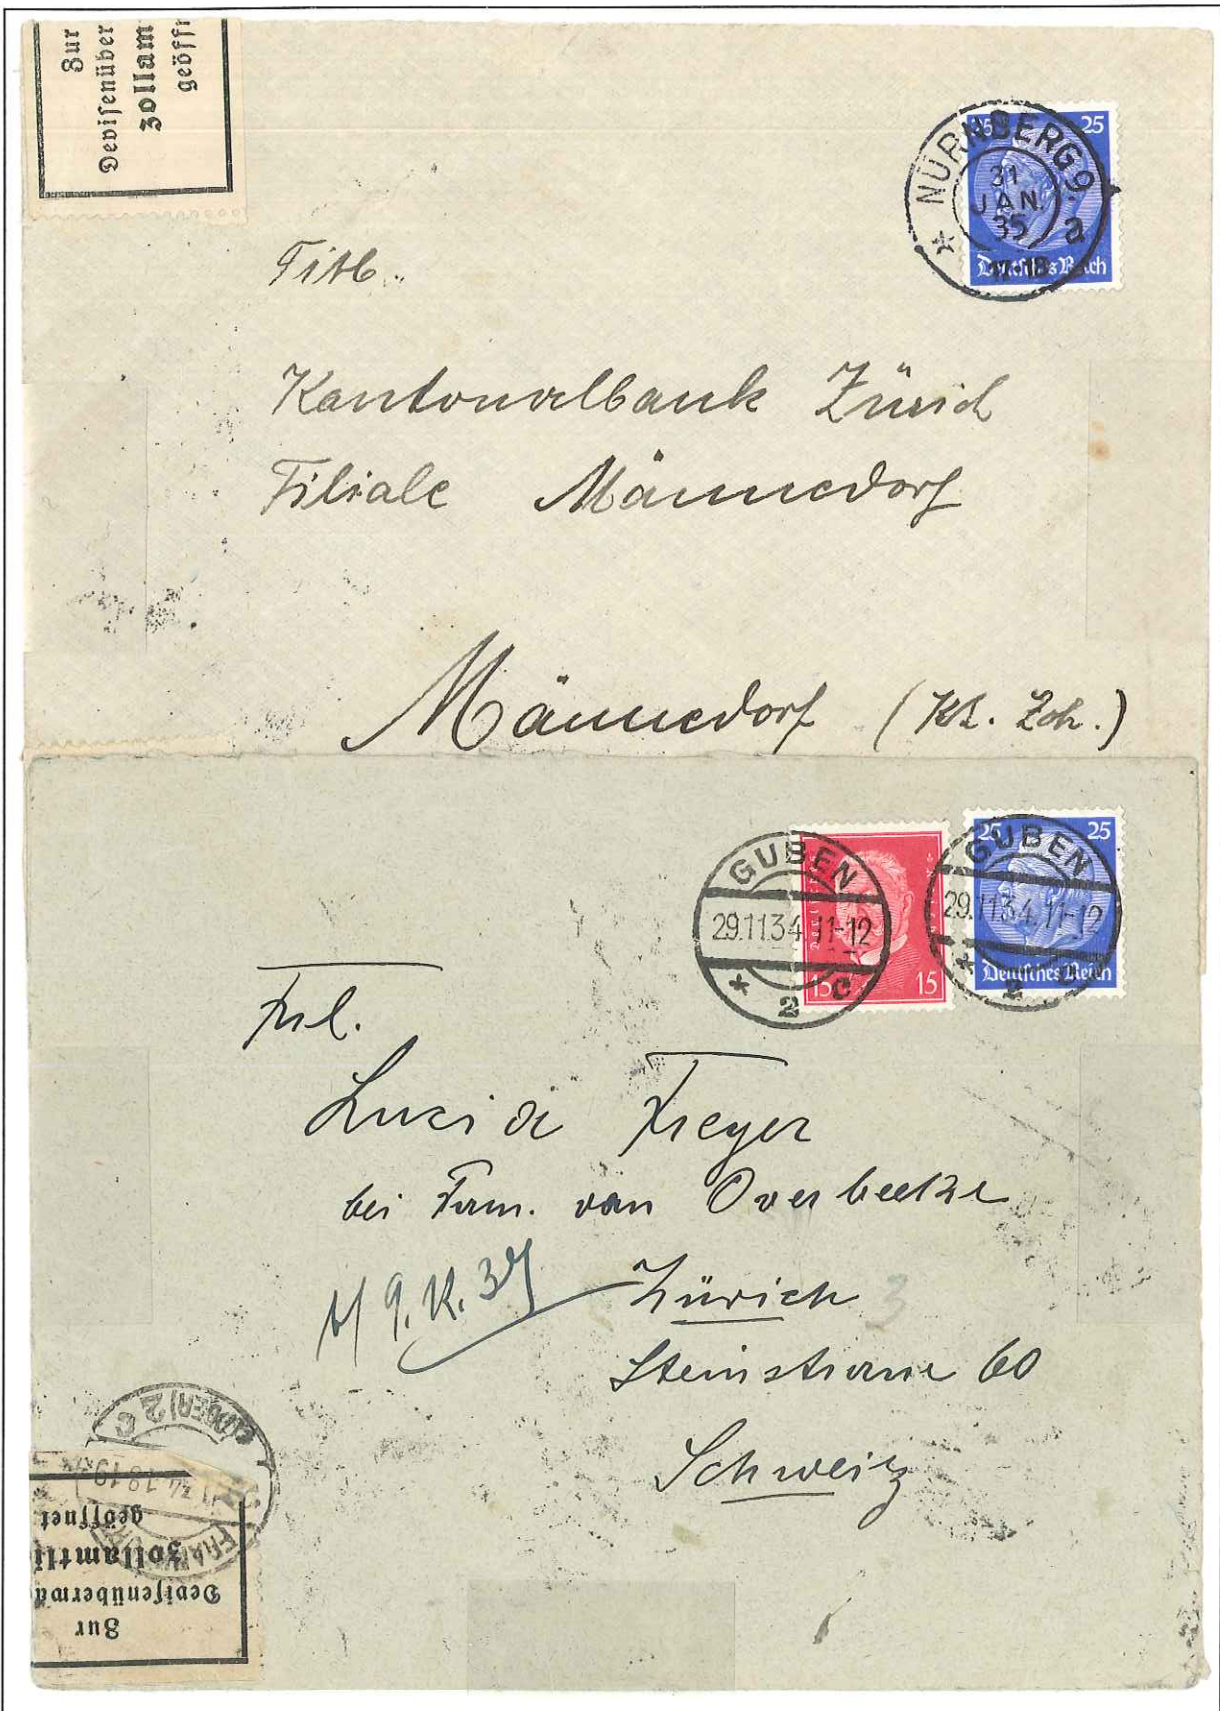 Zur
Devisenüber
zollam
geöff
25 25
NÜRNBERG 9
31
JAN.
35
a
17-18
Deutsches Reich
Titl.
Kantonalbank Zürich
Filiale Männedorf
Männedorf (Kt. Zch.)
GUBEN
29.11.34.11-12
2 c
15 15
25 25
GUBEN
29.11.34.11-12
2 c
Deutsches Reich
Frl.
Lucia Freyer
bei Fam. van Overbecke
Zürich 3
Steinstrasse 60
Schweiz
(ODER) 2 c
18-19
FRANKFURT
Zur
Devisenüberwa
zollamtli
geöffnet